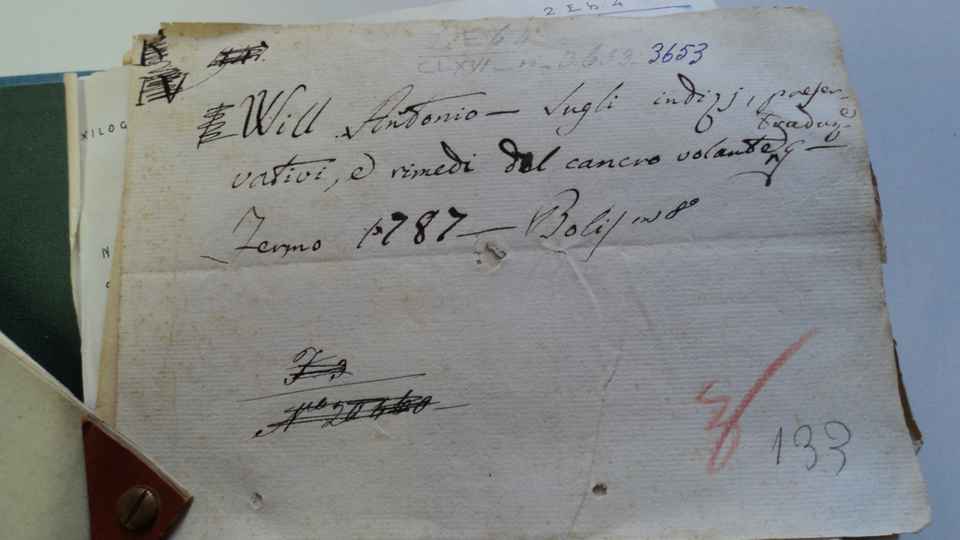 2 E b 4
2 E b 4
CLXVI - n - 3653 3653
Will Antonio - Sugli indizj, preser-
vativi, e rimedi del cancro volante, traduz-e
Fermo 1787 - Bolis in 8o
XILOG
N
133